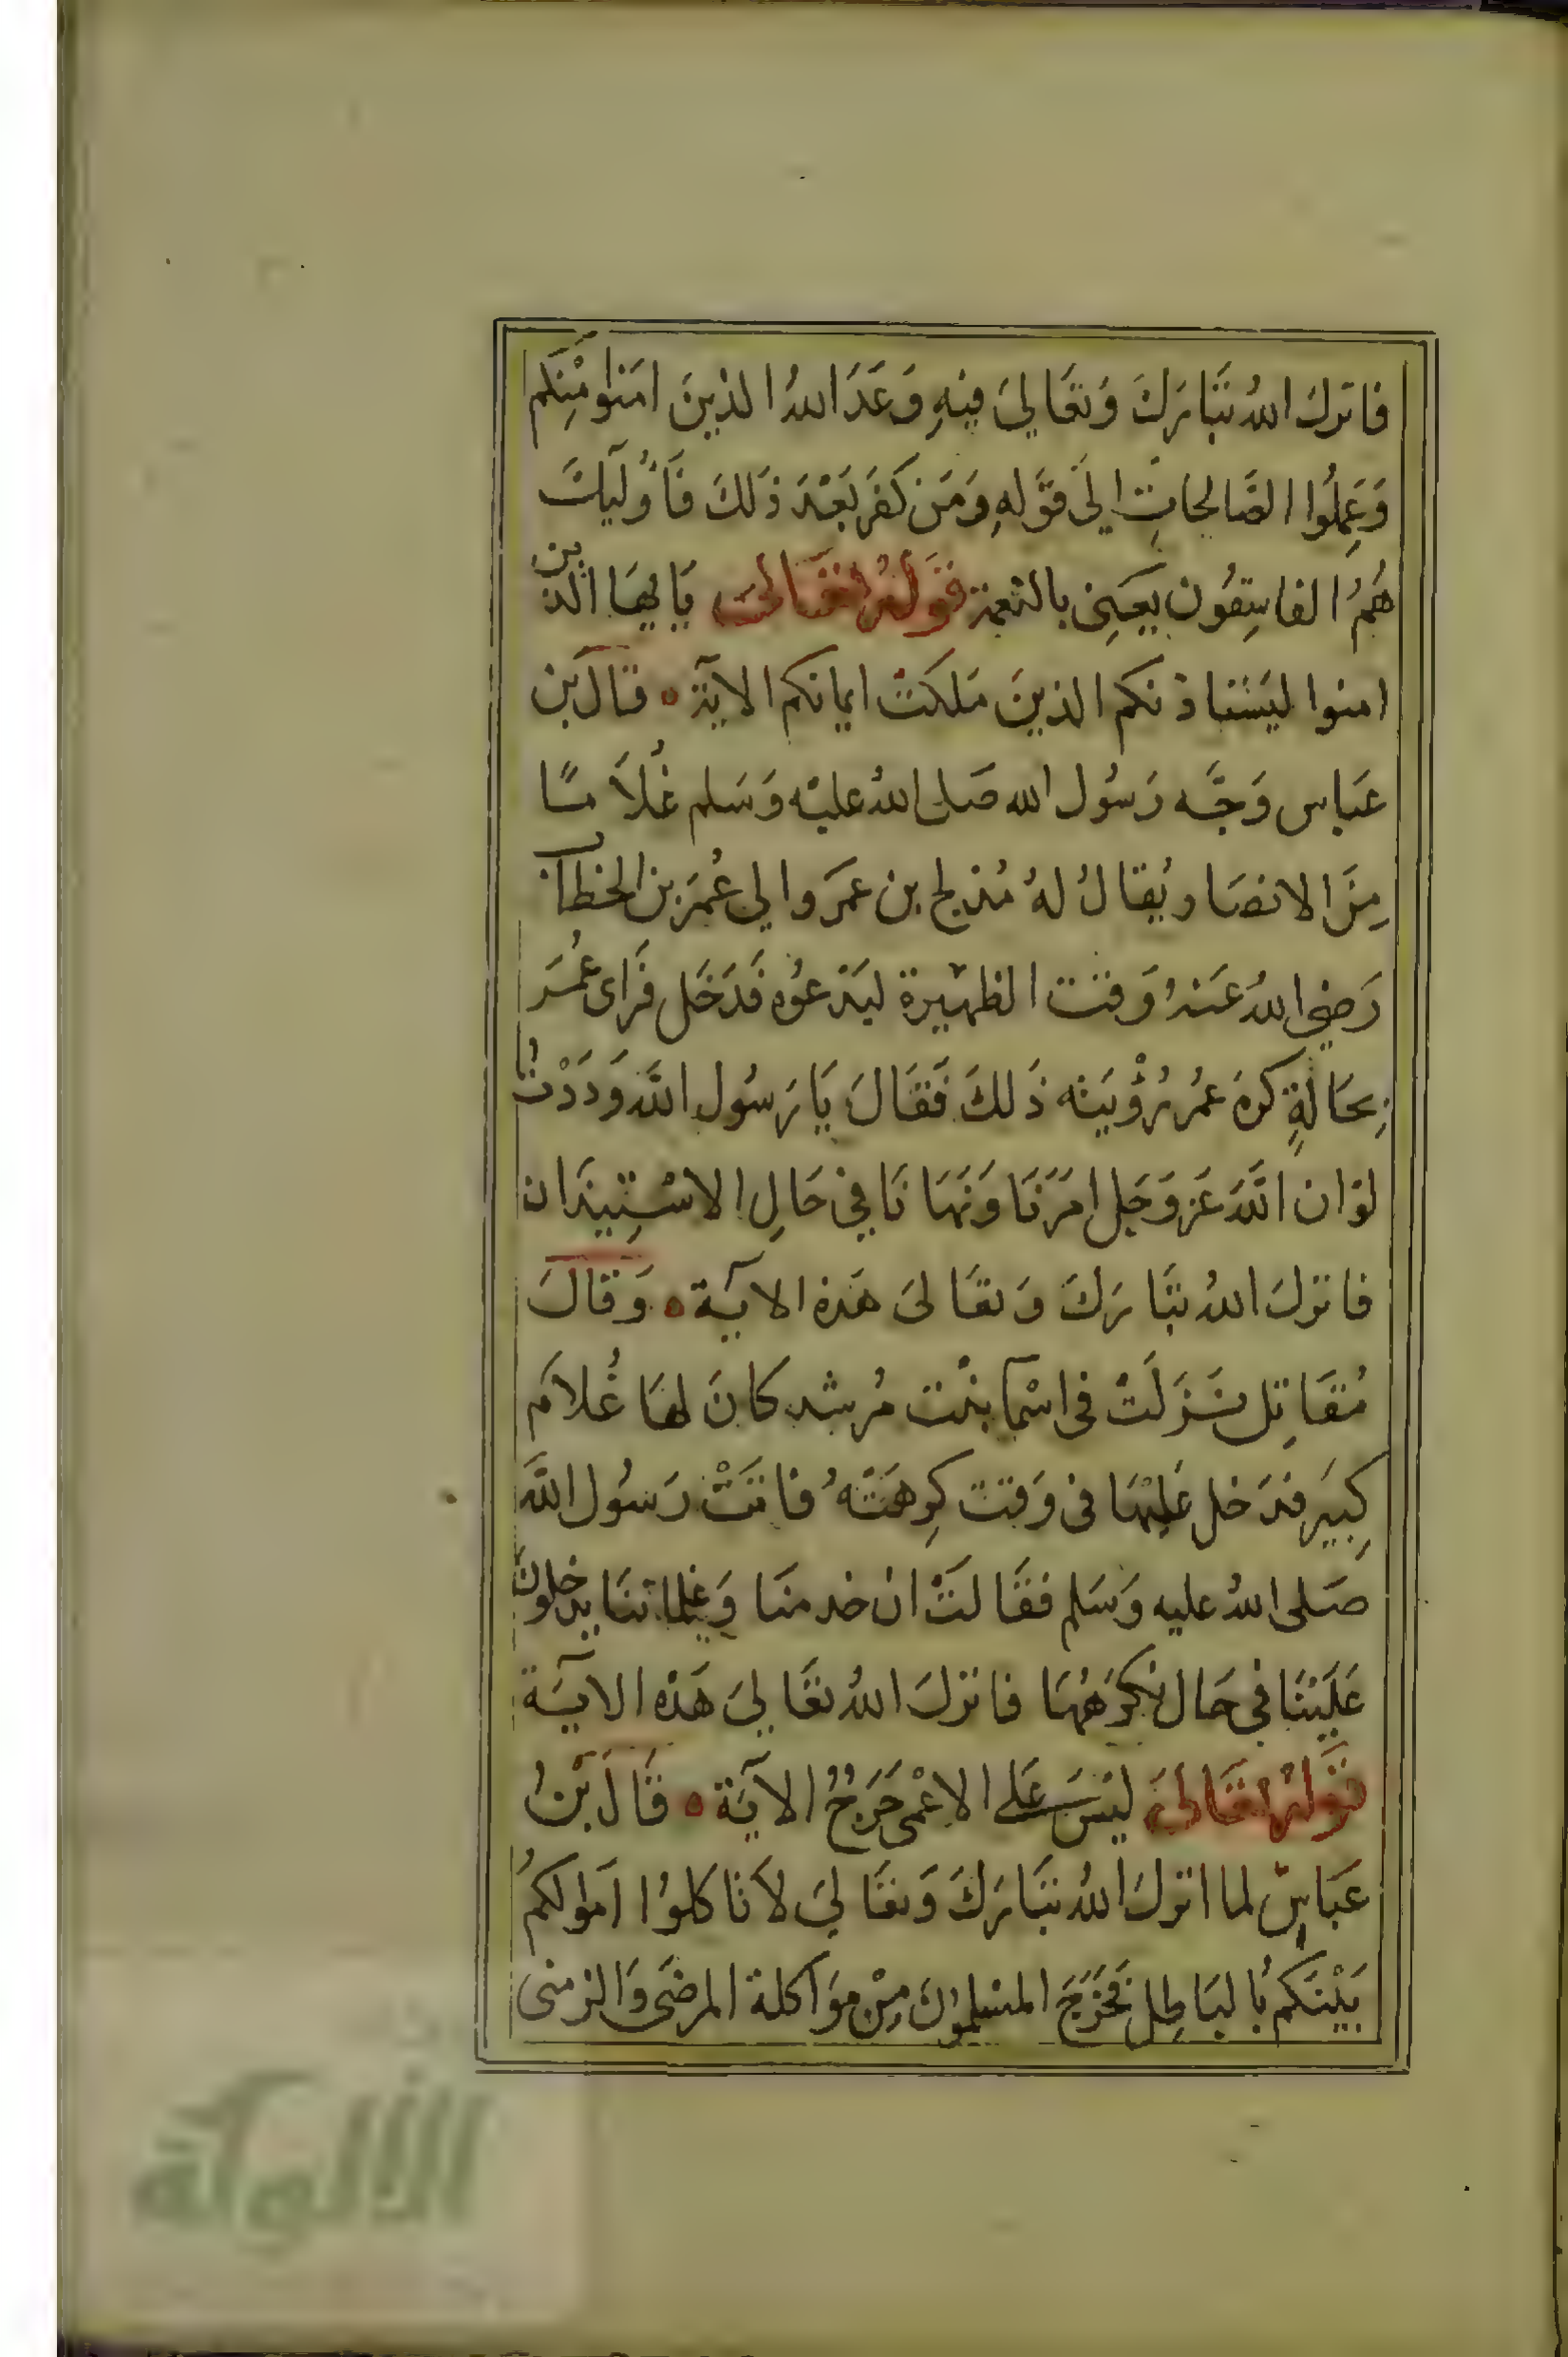 فانزل اللهُ تَبَارَكَ وَتعَالىَ فيهِ وَعَدَ اللهُ الذينَ امَنوا مِنْكم
وَعَمِلُوا الصَّالِحاتِ الىَ قوْلهِ وَمَن كفرَ بَعْدَ ذَلكَ فَأُولَيِكَ
هُمُ الفاسِقُون يعَني بالنعمة قوْلهُ تعَالىَ يَايهَا الذين
امنوا ليَستاذنكم الذينَ مَلكَتْ ايمانكم الآية ٥ قالَ بن
عَباس وَجَّه رَسُول الله صَلى اللهُ عليْه وَسَلم غُلاَمًا
مِنَ الانصَار يُقالُ لهُ مُدلج بن عَمرَو الي عُمَرَ بن الخطاب
رَضيَ اللهُ عَنهُ وَقتَ الظهِيرة ليَدْعُوه فَدَخَل فَرَاى عُمَرَ
بِحَالةٍ كرهَ عمُر رُؤْيَته ذَلكَ فَقَالَ يَا رَسُول اللهَ وَدَدْتُ
لوْ ان اللهَ عَز وَجَل امَرَنَا وَنَهَانَا فِي حَالِ الاسْتِيذَان
فانزلَ اللهُ تبَارَكَ وَتعَالىَ هَذه الايَة ٥ وَقالَ
مُقَاتِل نزَلَتْ فى اسْمآ بنْت مُرشد كانَ لهَا غُلامٌ
كبِيَر فدَخل عَليْهَا فى وَقت كرِهَتْهُ فاتَتْ رَسُول اللهَ
صَلى اللهُ عليه وَسَلم فقَالتْ ان خدمنَا وَغلمانَنَا يدخلونَ
عَلَيْنَا فى حَال نكرَهُهَا فانزلَ اللهُ تعَالىَ هَذْه الآيَة
قوْلهُ تعَالىَ ليْسَ عَلى الاعْمى حَرَجٌ الآيَة ٥ قَالَ بْنُ
عَباسٍ لما انزلَ اللهُ تبَارَكَ وَتعَالىَ لاَ تَاكلوُا اَمْوالكمُ
بَيْنَكم بُالبَاطِل تَحَرَّجَ المسْلموُنَ مِنْ مؤَاكلة المرضَى وَالزمنى
الألوكة